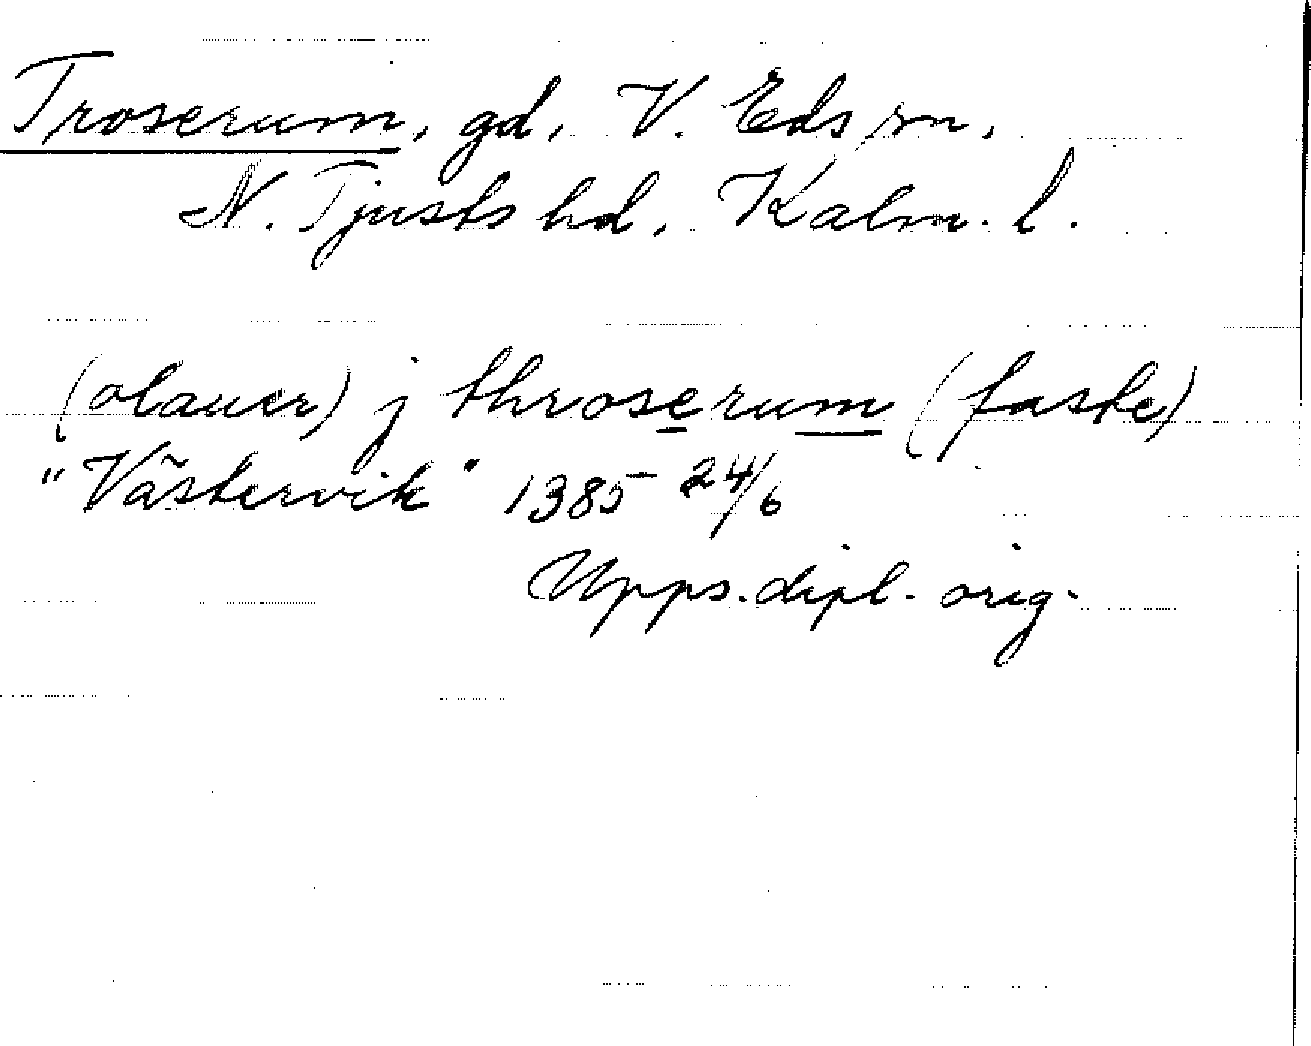 Troserum, gd, V. Eds sn,
N. Tjusts hd, Kalm. l.
(olauer) j throserum (faste)
"Västervik" 1385 24/6
Upps. dipl. orig.